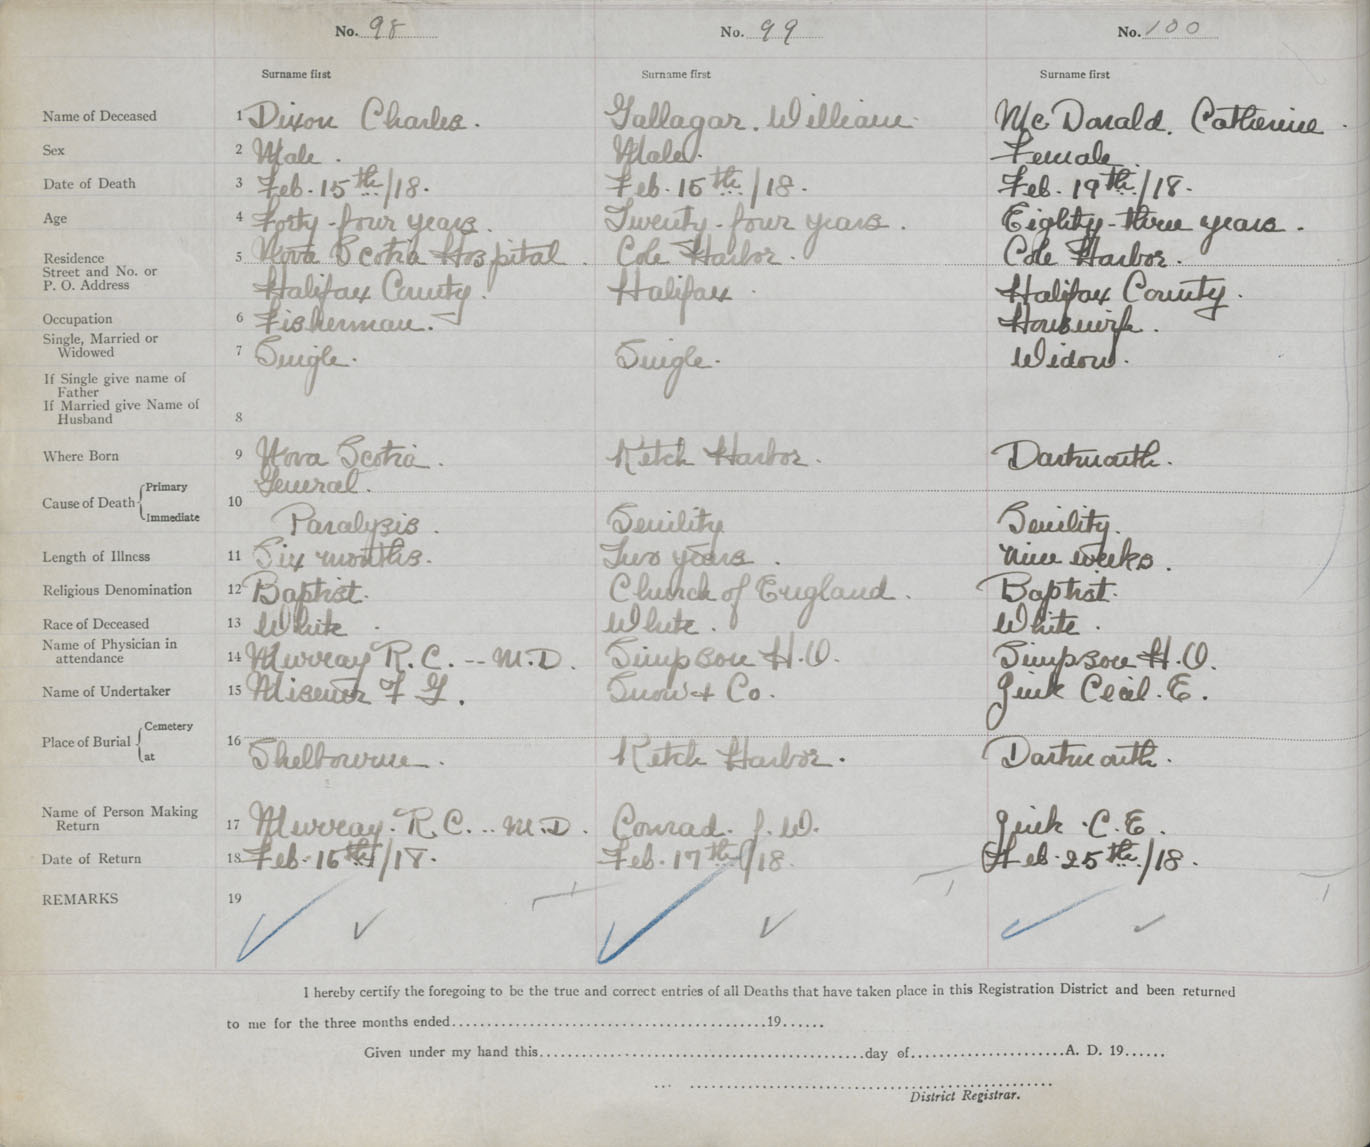 No. 98 No. 99 No. 100
Surname first Surname first Surname first
Name of Deceased 1 Dixon Charles. Gallagar. William. McDonald. Catherine.
Sex 2 Male. Male. Female.
Date of Death 3 Feb. 15th/18. Feb. 15th/18. Feb. 19th/18.
Age 4 Forty-four years. Twenty-four years. Eighty-three years.
Residence
Street and No. or
P. O. Address
5 Nova Scotia Hospital. Cole Harbor. Cole Harbor.
Halifax County. Halifax. Halifax County.
Occupation 6 Fisherman. Housewife.
Single, Married or
Widowed
7 Single. Single. Widow.
If Single give name of
Father
If Married give Name of
Husband
8
Where Born 9 Nova Scotia. Ketch Harbor. Dartmouth.
Cause of Death Primary
Immediate
10 General.
Paralysis. Senility Senility.
Length of Illness 11 Six months. Two years. nine weeks.
Religious Denomination 12 Baptist. Church of England. Baptist.
Race of Deceased 13 White. White. White.
Name of Physician in
attendance
14 Murray R.C. -- M.D. Simpson H.O. Simpson H.O.
Name of Undertaker 15 F G. Snow & Co. Cecil. E.
Place of Burial Cemetery
at
16 Shelbourne. Ketch Harbor. Dartmouth.
Name of Person Making
Return
17 Murray. R.C. .. M.D. Conrad. J.W. C.E.
Date of Return 18 Feb. 16th/18. Feb. 17th/18. Feb. 25th/18.
REMARKS 19
I hereby certify the foregoing to be the true and correct entries of all Deaths that have taken place in this Registration District and been returned
to me for the three months ended..........19......
Given under my hand this..........day of..........A. D. 19......
District Registrar.